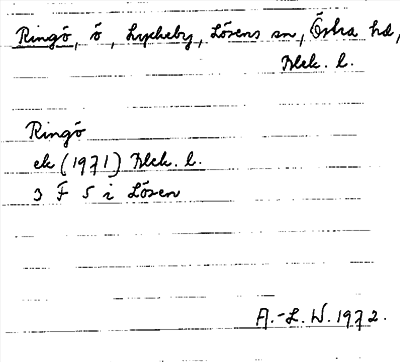 Ringö, ö, Lyckeby, Lösens sn, Östra hd,
Blek. l.
Ringö
ek (1971) Blek. l.
3 F 5 i Lösen
A.-L. W. 1972.